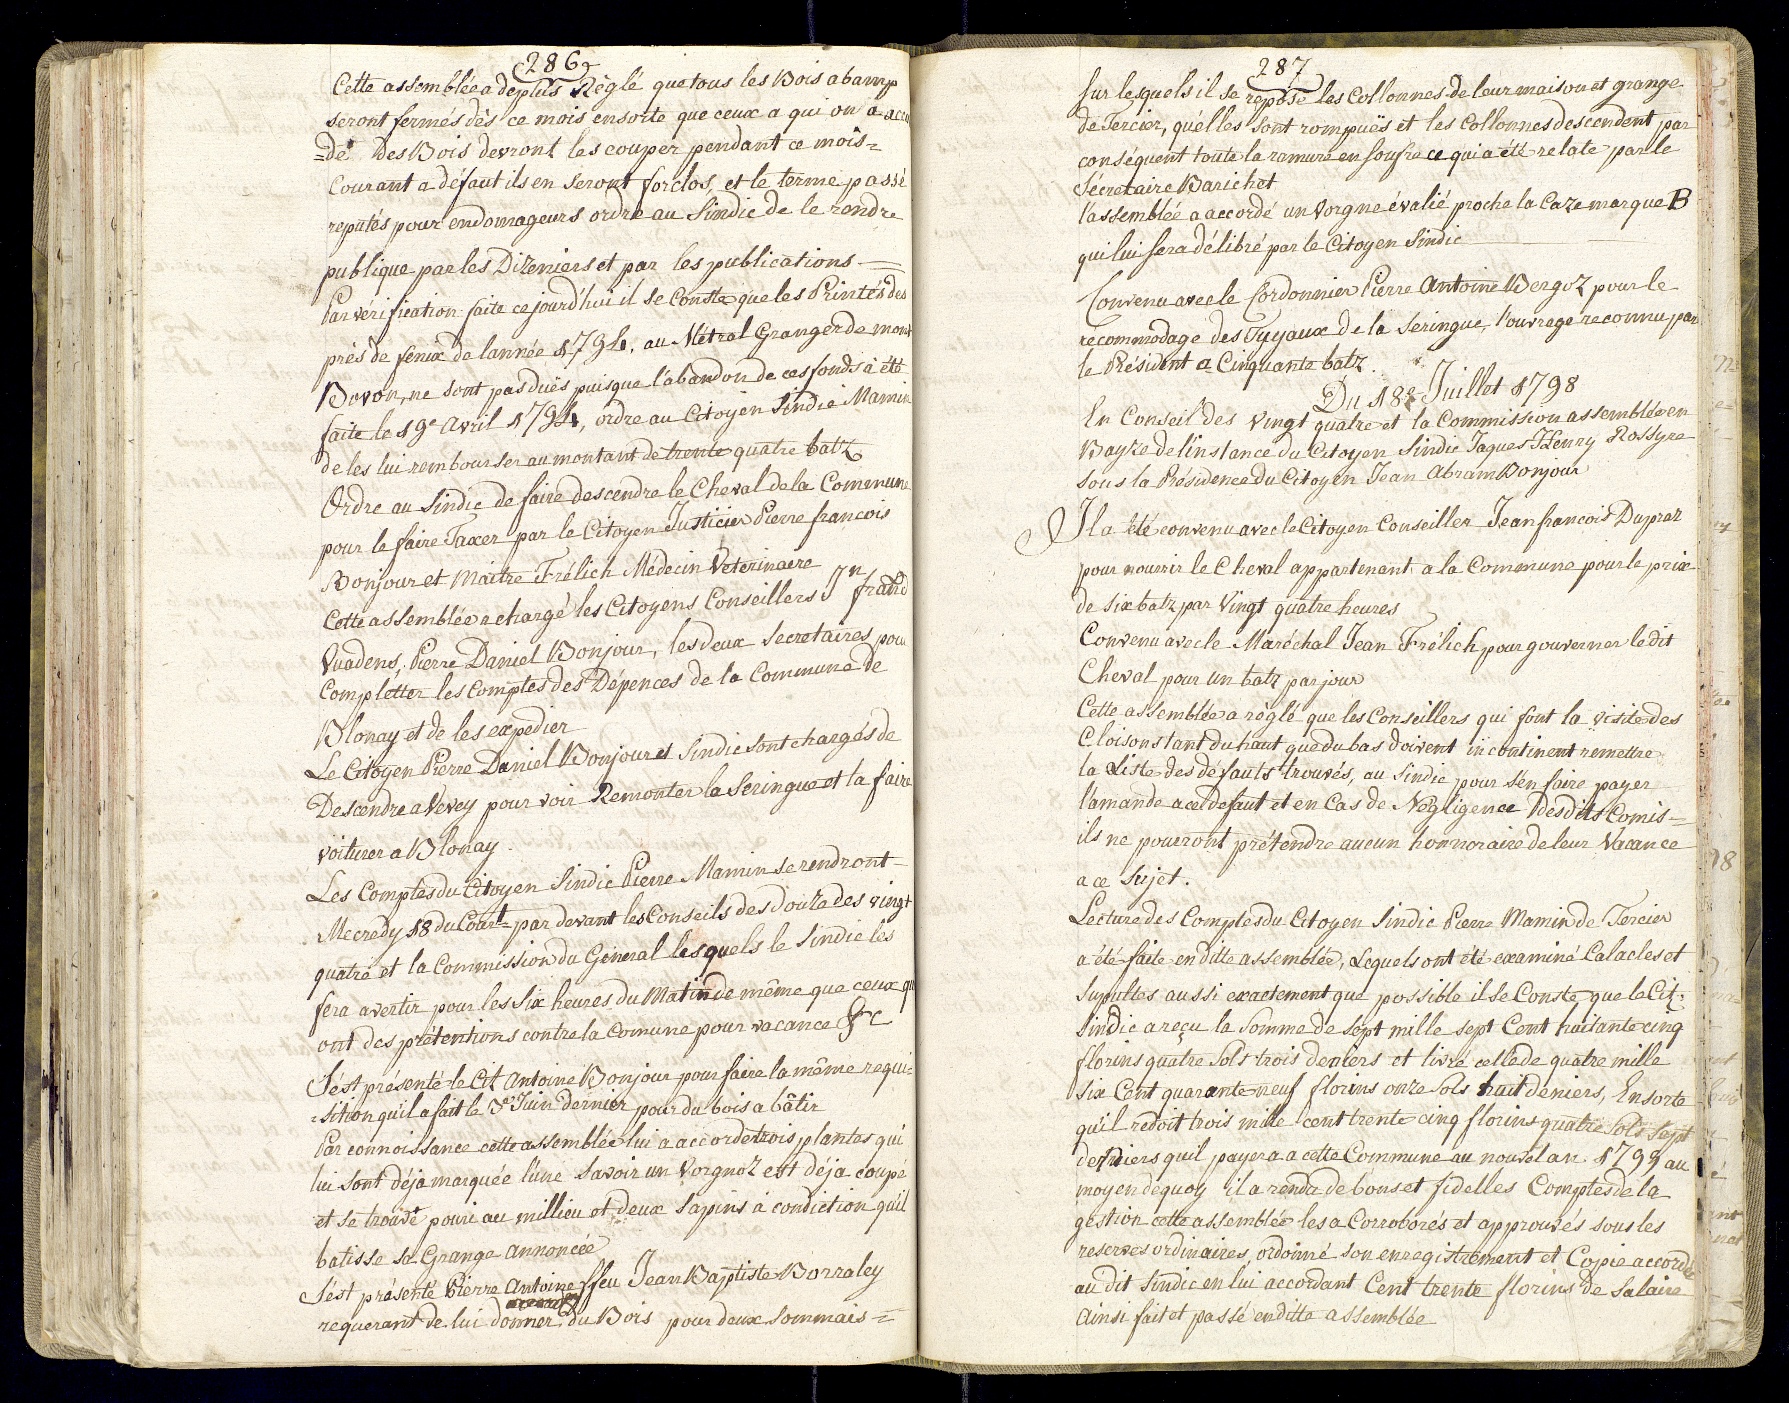 286
Cette assemblée a deplus Règlé que tous les Bois a bamp
seront fermés dès ce mois ensorte que ceux a qui on a accor
=dé des Bois devront les couper pendant ce mois=
Courant a défaut ils en seront forclos, et le terme passé
reputés pour endomageurs ordre au Sindic de le rendre
publique par les Dizeniers et par les publications =
Par vérification faite ce jourd'hui il se Conste que les Printés des
près de feniux de lannée 1794, au Métral Granger de mont
Bovon, ne sont pas duës puisque l'abandon de ces fonds a été
faite le 19e Avril 1794, ordre au Citoyen Sindic Mamin
de les lui rembourser au montant de trente quatre batz
Ordre au Sindic de faire descendre le Cheval de la Commune
pour le faire Taxer par le Citoyen Justicier Pierre francois
Bonjour et Maitre Frélich Médecin Veterinaire
Cette assemblée a chargé les Citoyens Conseillers Jn frand
Vuadens, Pierre Daniel Bonjour, les deux Secretaires pour
Completter les Comptes des Dépences de la Commune de
Blonay et de les expedier
Le Citoyen Pierre Daniel Bonjour et Sindic sont chargés de
Descendre a Vevey pour voir Remonter la Seringue et la faire
voiturer a Blonay.
Les Comptes du Citoyen Sindic Pierre Mamin se rendront
Mecredy 18 du Court= par devant les Conseils des Douze des vingt
quatre et la Commission du Géneral lesquels le Sindic les
fera avertir pour les Six heures du Matin de même que ceux qui
ont des prétentions contre la Comune pour vacance &c
S'ést présenté le Cit Antoine Bonjour pour faire la même requi=
=sition quil a fait le 3e Juin dernier pour du bois a bâtir
Par connoissance cette assemblée lui a accordé trois plantes qui
lui sont déja marquée l'une Savoir un Vorgnoz est déja coupé
et se trouve pouri au millieu et deux Sapins à condiction quil
batisse sa Grange Annoncée
S'ést présenté Pierre Antoine ffeu Jean Baptiste Borraley
requerant de lui donner du Bois pour deux Sommais=
287
Sur lesquels il se repose les Collonnes de leur maison et grange
de Tercier, quélles sont rompuës et les Collonnes descendent par
conséquent toute la ramure en soufre ce qui a été relate par le
Sécretaire Barichet
l'assemblée a accordé un Vorgne évalié proche la Caze marque B
qui lui sera délibré par le Citoyen Sindic
Convenu avec le Cordonnier Pierre Antoine Bergoz pour le
recommodage des Tuyaux de la Seringue, l'ouvrage reconnu par
le Président a Cinquante batz.
Du 18e Juillet 1798
En Conseil des Vingt quatre et la Commission assemblée en
Bayse de linstance du Citoyen Sindic Jaques Henry Rossyre
sous la Présidence du Citoyen Jean Abram Bonjour
Il a été convenu avec le Citoyen Conseiller Jean francois Dupraz
pour nourrir le Cheval appartenant a la Commune pour le prix
de six batz par Vingt quatre heures
Convenu avec le Maréchal Jean Frélich pour gouverner le dit
Cheval pour un batz par jour
Cette assemblée a règlé que les Conseillers qui font la visite des
Cloisons tant du haut que du bas doivent incontinent remettre
la Liste des défauts trouvés, au Sindic pour s'en faire payer
l'amande a ce defaut et en Cas de Négligence des dits Comis=
ils ne pourront prétendre aucun honnoraire de leur Vacance
a ce Sujet.
Lecture des Comptes du Citoyen Sindic Pierre Mamin de Tercier
a été faite en ditte assemblée, Lequels ont été examiné Calacles et
Suputtes aussi exactement que possible il se Conste que le Cit:
Sindic a reçu la Somme de sept mille sept Cent huitante cinq
florins quatre Sols trois deniers et livré celle de quatre mille
Six Cent quarante neuf florins onze sols huit deniers, Ensorte
qu'il redoit trois mille cent trente cinq florins quatre sols sept
derniers quil payera a cette Commune au nouvel an 1799 au
moyen dequoy il a rendu de bons et fidelles Comptes de la
gestion cette assemblée les a Corroborés et approuvés sous les
reserves ordinaires, ordonné son enregistrement et Copie accordée
au dit Sindic en lui accordant Cent trente florins de Salaire
Ainsi fait et passé en ditte assemblée